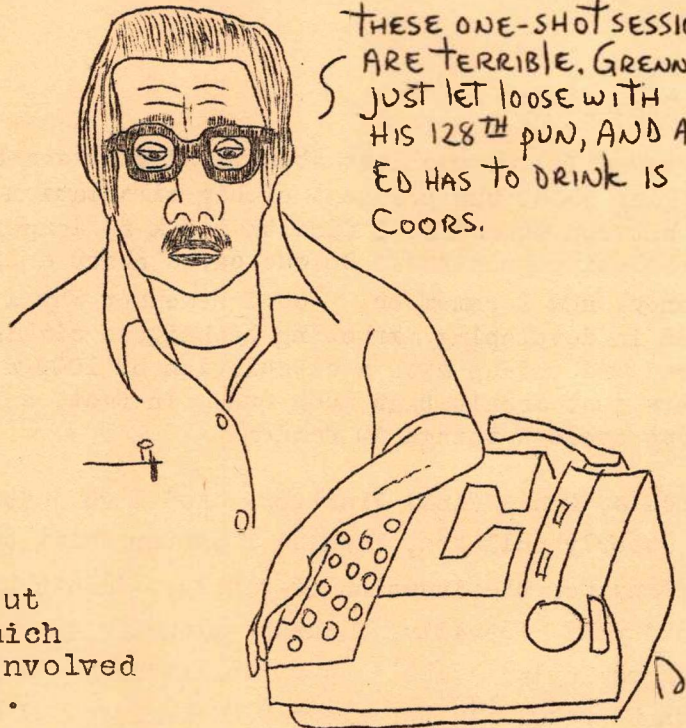 THESE ONE-SHOT SESSIO
ARE TERRIBLE. GRENN
JUST LET LOOSE WITH
HIS 128TH PUN, AND A
ED HAS TO DRINK IS
COORS.
ut
ich
nvolved
.